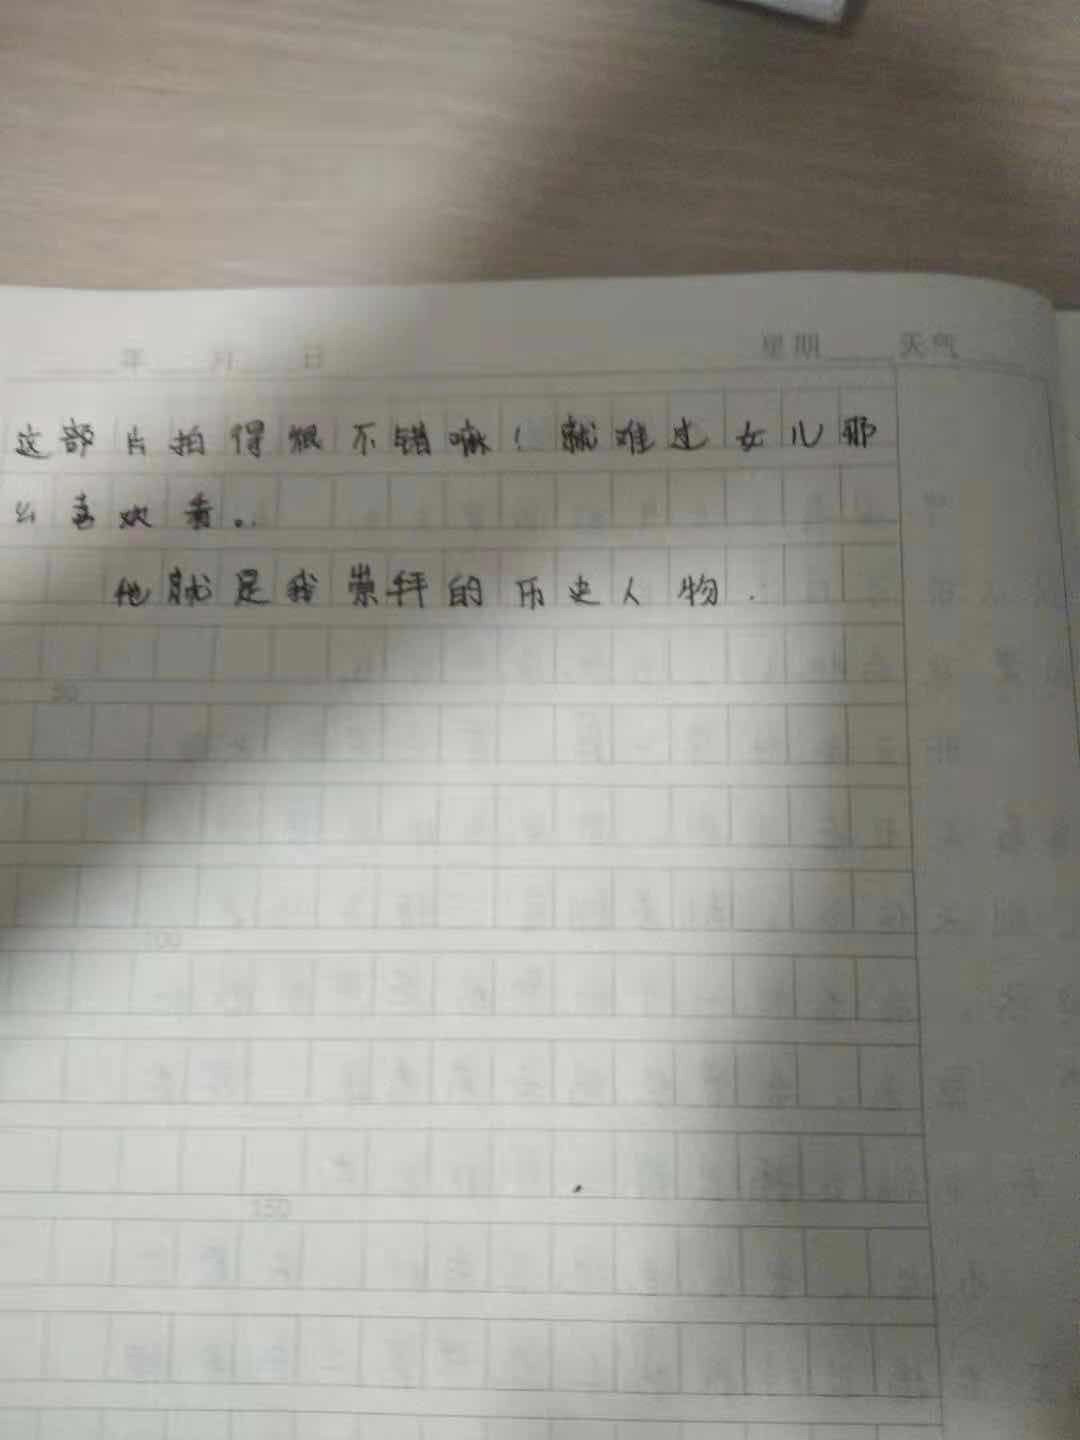 年 月 日 星期 天气
这部片拍得很不错嘛！就难过女儿那
么喜欢看。
他就是我崇拜的历史人物.
100
150